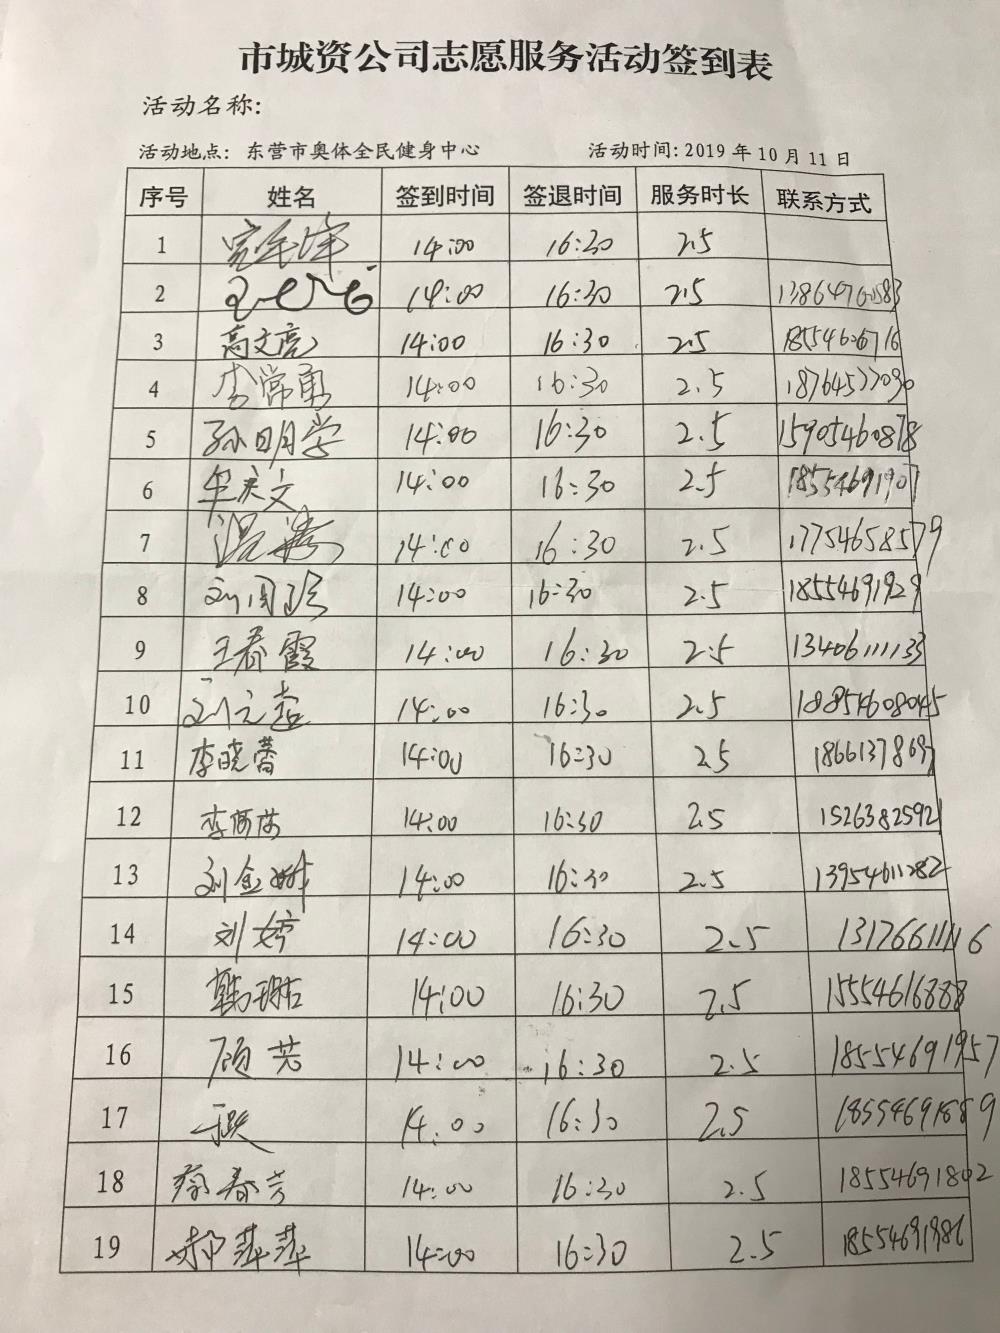 市城资公司志愿服务活动签到表
活动名称:
活动地点: 东营市奥体全民健身中心 活动时间: 2019 年 10 月 11 日
序号 姓名 签到时间 签退时间 服务时长 联系方式
1 14:00 16:30 2.5
2 14:00 16:30 2.5
3 高文亮 14:00 16:30 2.5
4 李常勇 14:00 16:30 2.5 18764577030
5 孙明学 14:00 16:30 2.5 15905460878
6 14:00 16:30 2.5 18554691907
7 14:00 16:30 2.5 17754658579
8 14:00 16:30 2.5 18554691929
9 王春霞 14:00 16:30 2.5 13406111133
10 14:00 16:30 2.5
11 李晓蕾 14:00 16:30 2.5 18661378697
12 14:00 16:30 2.5 15263825921
13 14:00 16:30 2.5 13954611282
14 刘婷 14:00 16:30 2.5 13176611116
15 韩琳 14:00 16:30 2.5 15554616888
16 顾芸 14:00 16:30 2.5 18554691957
17 14:00 16:30 2.5 18554691889
18 蔡春芳 14:00 16:30 2.5 18554691802
19 郝萍萍 14:00 16:30 2.5 18554691986